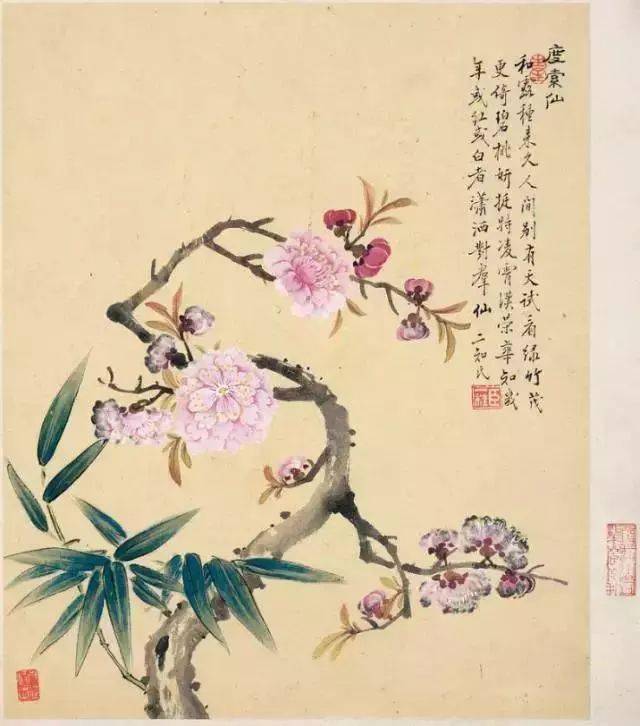 度索仙
和露種來久人間別有天試看綠竹茂
更倚碧桃妍挺特凌霄漢榮華知歲
年或紅或白者瀟洒對羣仙 二知民